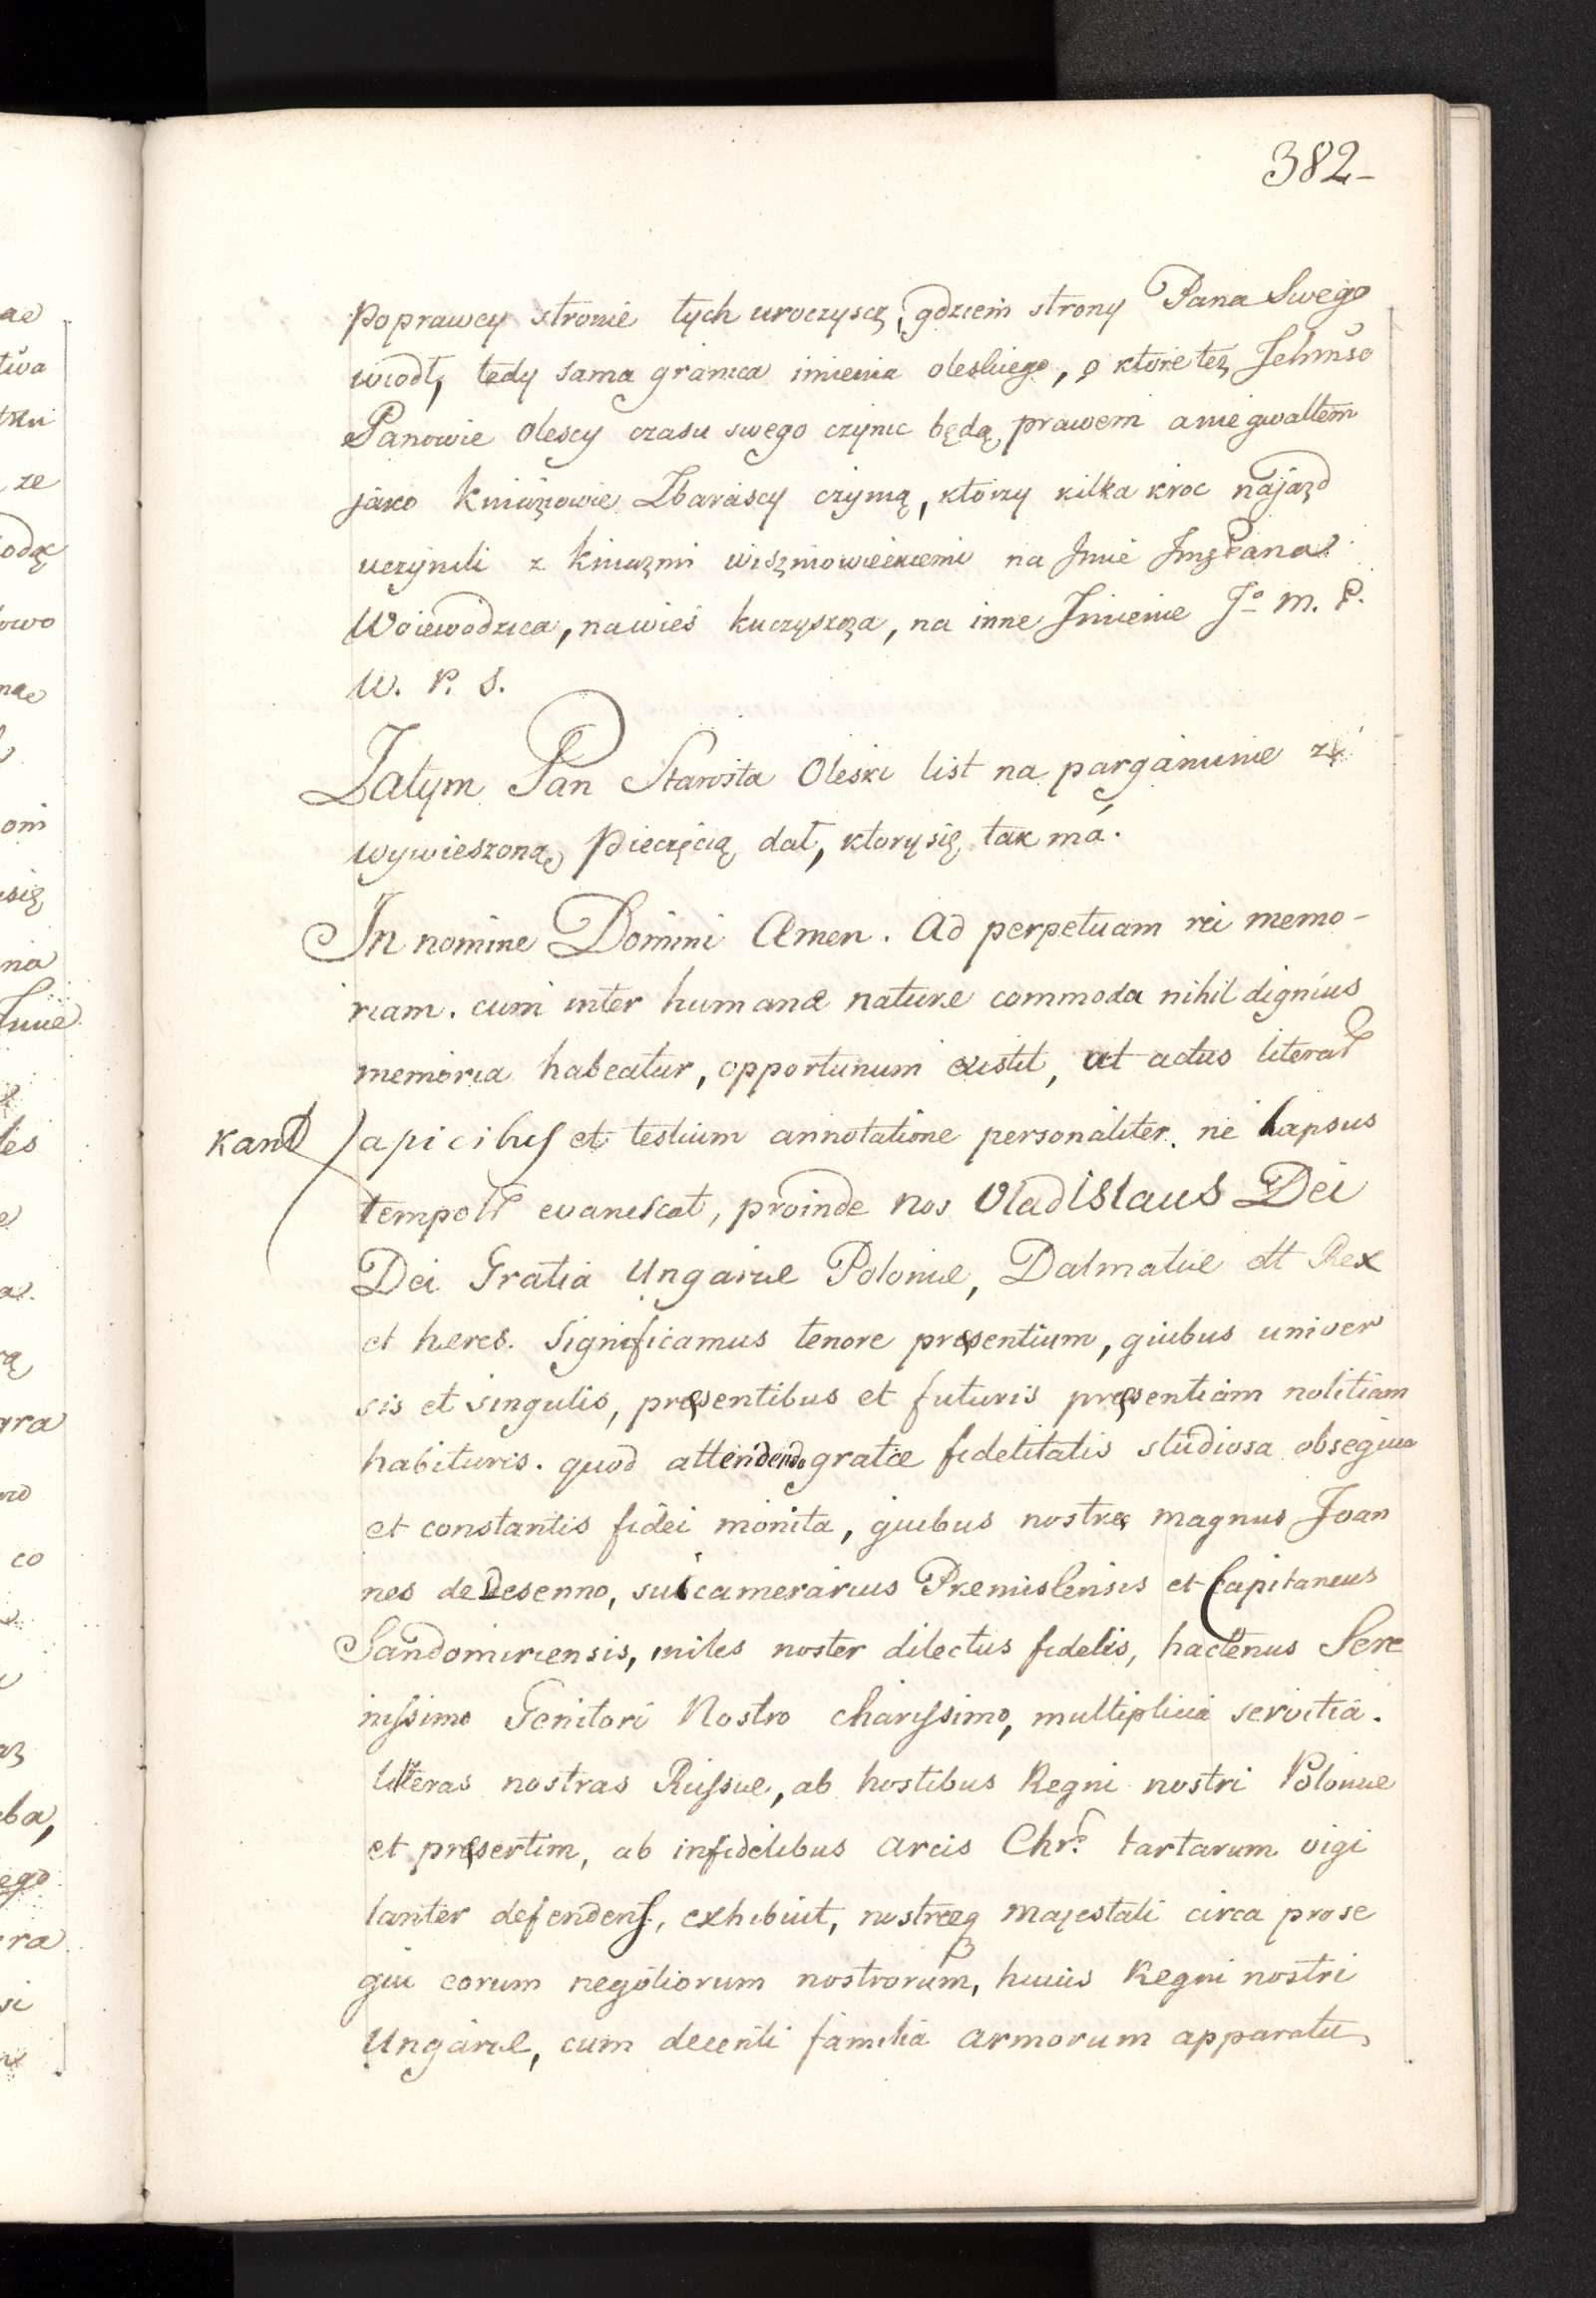 382-
poprawcy stronie tych uroczyscz, gdziem strony Pana Swego
wiodł, tedy sama granica imienia oleskiego, o ktore tez
Panowie olescy czasu swego czynic będą prawem a nie gwałtem
jako kniaziowie Zbarascy czynią, ktorzy kilka kroc najazd
uczynili z kniazmi wiszniowieckiemi na Imie Imę Pana
Woiewodzica, na wieś kuczyszcza, na inne Imienie Jo M. P.
W. P. S.
Zatym Pan Starosta Oleski list na pargaminie z
wywieszoną pieczęcią dał, ktory się tak má.
In nomine Domini Amen. Ad perpetuam rei memo-
riam. cum inter humanæ naturæ commoda nihil dignius
memoria habeatur, opportunum existit, ut actus
apicibus et testium annotatione personaliter. ne lapsus
evanescat, proinde nos Vladislaus Dei
Dei Gratia Ungariæ Poloniæ, Dalmatiæ Rex
et heres. Significamus tenore presentium, quibus univer
sis et singulis, presentibus et futuris presentiam notitiam
habituris. quod attendendo gratæ fidelitatis studiosa obsequia
et constantis fidei monita, quibus nostræ magnus Joan
nes de Desenno, subcamerarius Premislensis et Capitaneus
Sandomiriensis, miles noster dilectus fidelis, hactenus Sere
nissimo Genitori Nostro charissimo, multiplicia servitia.
litteras nostras Russiæ, ab hostibus Regni nostri Poloniæ
et presertim, ab infidelibus arcis Chr. tartarum vigi
lanter defendens, exhibuit, nostræq majestati circa prose
qui eorum negotiorum nostrorum, huius Regni nostri
Ungariæ, cum decenti familia armorum apparatu